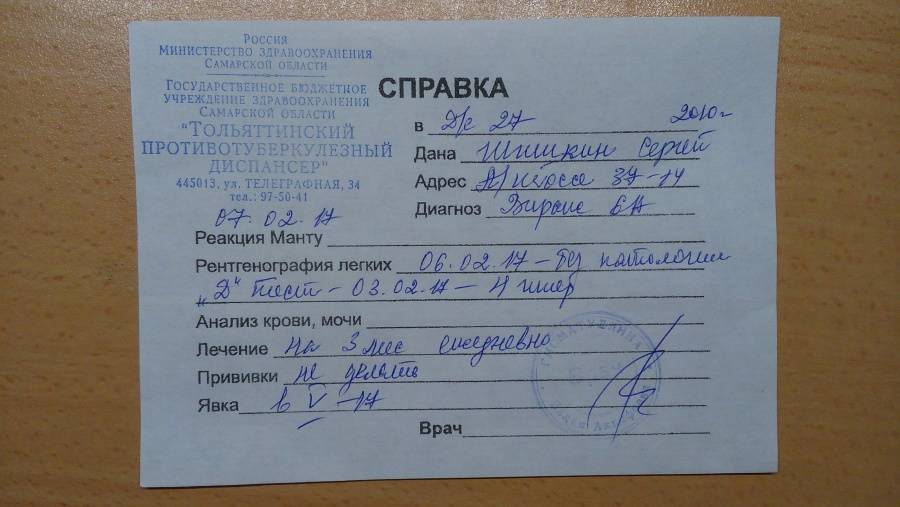 Россия
Министерство здравоохранения
Самарской области
Государственное бюджетное
учреждение здравоохранения
Самарской области
"Тольяттинский
противотуберкулезный
диспансер"
445013, ул. Телеграфная, 34
тел.: 97-50-41
07.02.17
СПРАВКА
в Д/с 27 2010г
Дана Шишкин Сергей
Адрес 37-14
Диагноз Вираж
Реакция Манту
Рентгенография легких 06.02.17 - без патологии
"Д" тест - 03.02.17 - гипер
Анализ крови, мочи
Лечение на 3 мес ежедневно
Прививки не делать
Явка в V-17
Врач